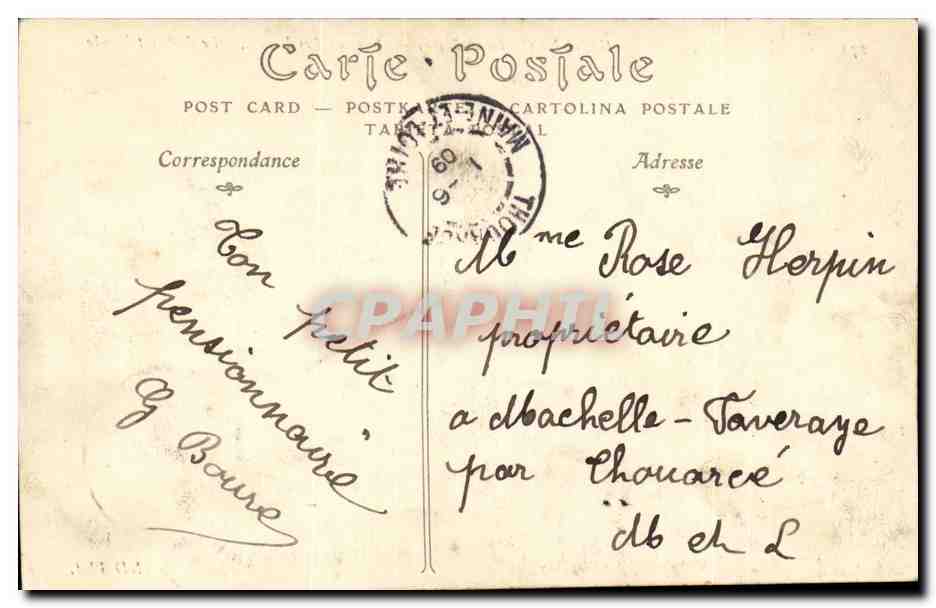 Carte Postale
POST CARD — POSTKARTE — CARTOLINA POSTALE
TARJETA POSTAL
Correspondance
Adresse
MAINE-ET-LOIRE
9 - 1
09
Ton petit
pensionnaire
G Boure
Mme Rose Herpin
propriétaire
a Machelle - Faveraye
par Thouarcé
M et L
CPAPHIL